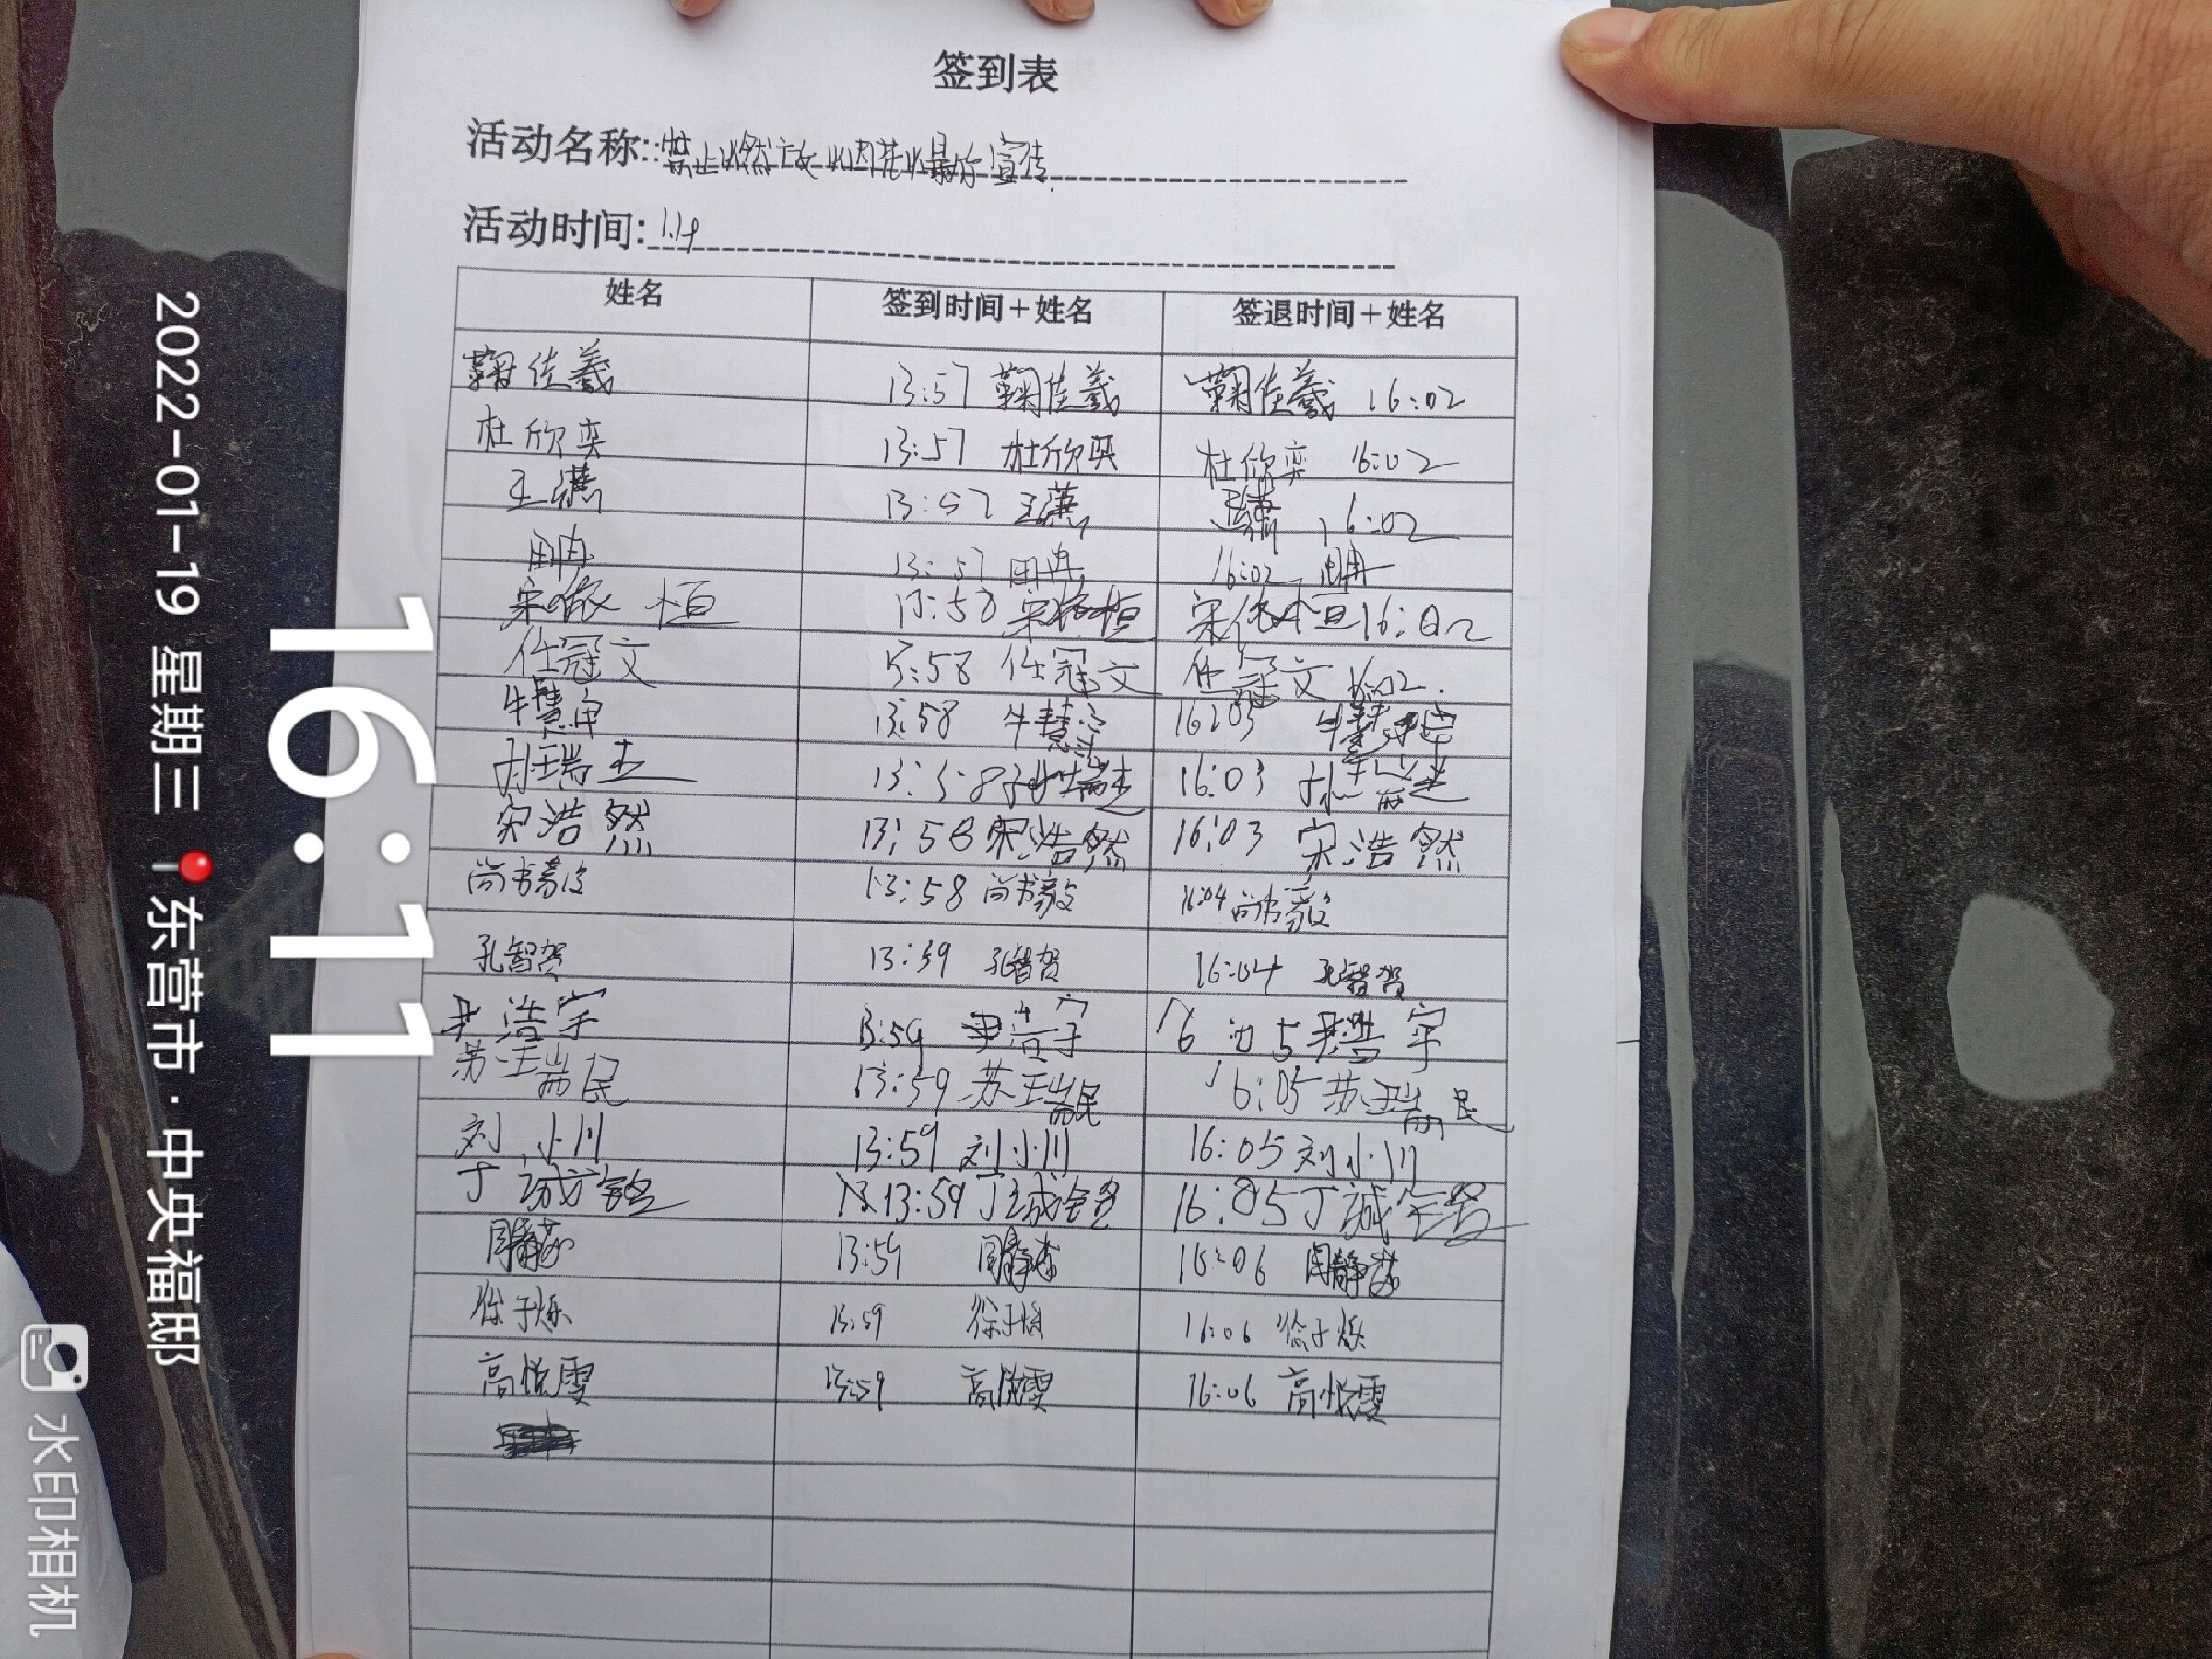 签到表
活动名称:禁止燃放烟花爆竹宣传.
活动时间:1.19
姓名 签到时间+姓名 签退时间+姓名
鞠佳羲 13:57 鞠佳羲 鞠佳羲 16:02
杜欣奕 13:57 杜欣奕 杜欣奕 16:02
王潇 13:57 王潇 王潇 16:02
田冉 13:57 田冉 16:02 田冉
宋依恒 13:58 宋依恒 宋依恒 16:02
任冠文 13:58 任冠文 任冠文 16:02.
牛慧 13:58 牛慧 16:03 牛慧
孙瑞 13:58 孙瑞 16:03 孙瑞
宋浩然 13:58 宋浩然 16:03 宋浩然
尚书毅 13:58 尚书毅 16:04 尚书毅
孔智贺 13:59 孔智贺 16:04 孔智贺
尹浩宇 13:59 尹浩宇 16:05 尹浩宇
苏瑞民 13:59 苏瑞民 16:05 苏瑞民
刘小川 13:59 刘小川 16:05 刘小川
丁诚 13:59 丁诚 16:05 丁诚
周静 13:59 周静 16:06 周静
徐于烁 13:59 徐于烁 16:06 徐于烁
高悦雯 13:59 高悦雯 16:06 高悦雯
16:11
2022-01-19 星期三 东营市·中央福邸
水印相机